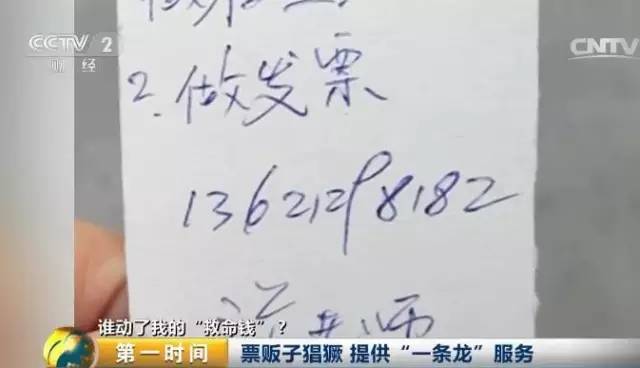 CCTV 2
财经
CNTV
2.做发票
13621298182
谁动了我的“救命钱”?
第一时间
票贩子猖獗 提供“一条龙”服务